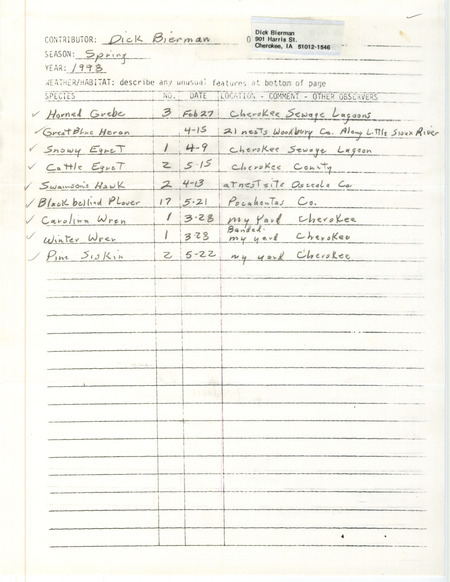 CONTRIBUTOR: Dick Bierman
Dick Bierman
901 Harris St.
Cherokee, IA 51012-1546
SEASON: Spring
YEAR: 1998
WEATHER/HABITAT: describe any unusual features at bottom of page
SPECIES NO. DATE LOCATION - COMMENT - OTHER OBSERVERS
✓ Horned Grebe 3 Feb 27 Cherokee Sewage Lagoons
✓ Great Blue Heron 4-15 21 nests Woodbury Co. Along Little Sioux River
✓ Snowy Egret 1 4-9 Cherokee Sewage Lagoon
✓ Cattle Egret 2 5-15 Cherokee County
✓ Swainson's Hawk 2 4-13 at nest site Osceola Co.
✓ Black bellied Plover 17 5-21 Pocahontas Co.
✓ Carolina Wren 1 3-28 my yard Cherokee
Banded-
✓ Winter Wren 1 3-23 my yard Cherokee
✓ Pine Siskin 2 5-22 my yard Cherokee